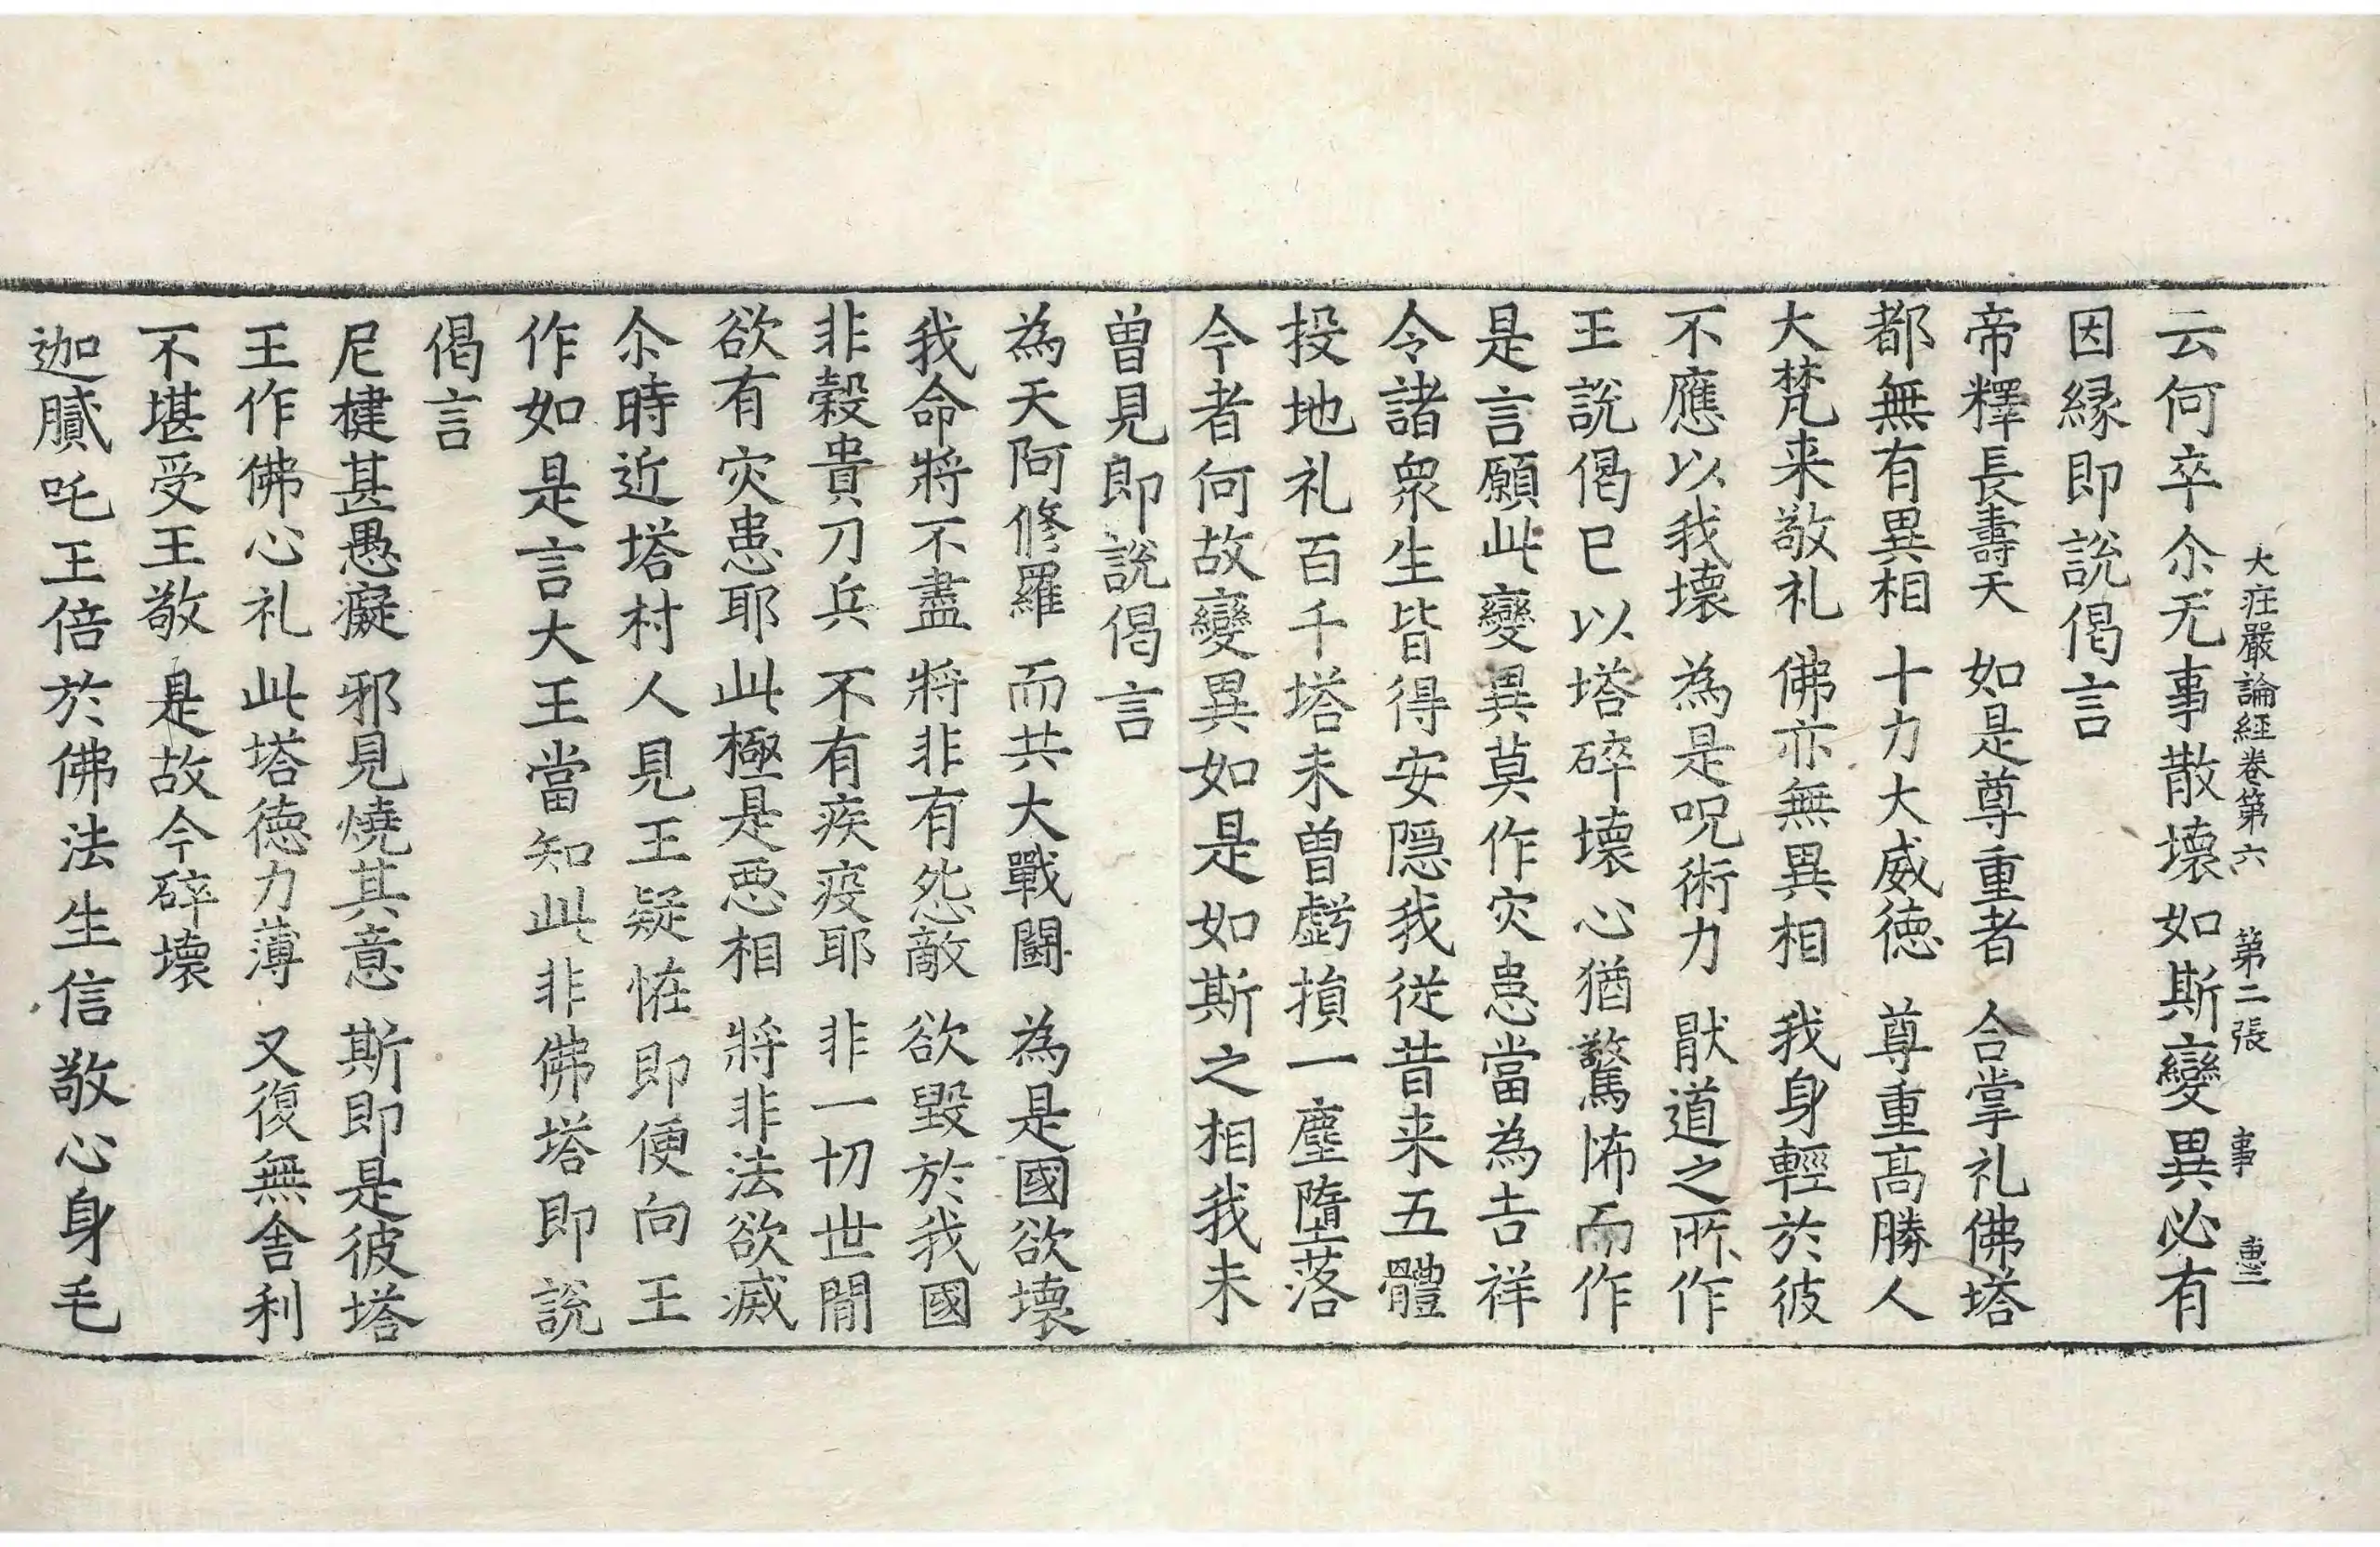 大庄嚴論經卷第六 第二張 事
云何卒尒无事散壞如斯變異必有
因縁即說偈言
帝釋長壽天 如是尊重者 合掌礼佛塔
都無有異相 十力大威徳 尊重高勝人
大梵来敬礼 佛亦無異相 我身輕於彼
不應以我壞 為是呪術力 猒道之所作
王說偈已以塔碎壞心猶驚怖而作
是言願此變異莫作灾患當為吉祥
令諸衆生皆得安隠我従昔来五體
投地礼百千塔未曽虧損一塵墮落
今者何故變異如是如斯之相我未
曽見即說偈言
為天阿修羅 而共大戰鬪 為是國欲壞
我命將不盡 將非有怨敵 欲毀於我國
非穀貴刀兵 不有疾疫耶 非一切世間
欲有灾患耶 此極是惡相 將非法欲滅
尒時近塔村人見王疑恠即便向王
作如是言大王當知此非佛塔即說
偈言
尼揵甚愚癡 邪見燒其意 斯即是彼塔
王作佛心礼 此塔徳力薄 又復無舎利
不堪受王敬 是故今碎壞
迦膩吒王倍於佛法生信敬心身毛